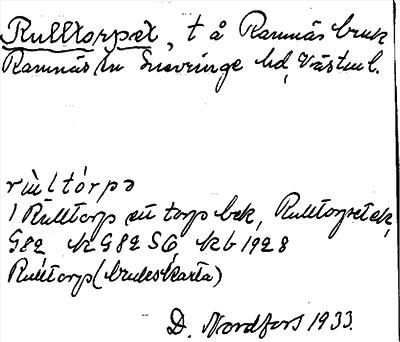 Rulltorpet, t å Ramnäs bruk
Ramnäs sn Snevringe hd, Västml.
rùltórpə
1 Rulltorp ett torp bek, Rulltorpet ek,
G82 kG82 SÖ kb 1928
Rulltorp (brukskarta)
D. Nordfors 1933.